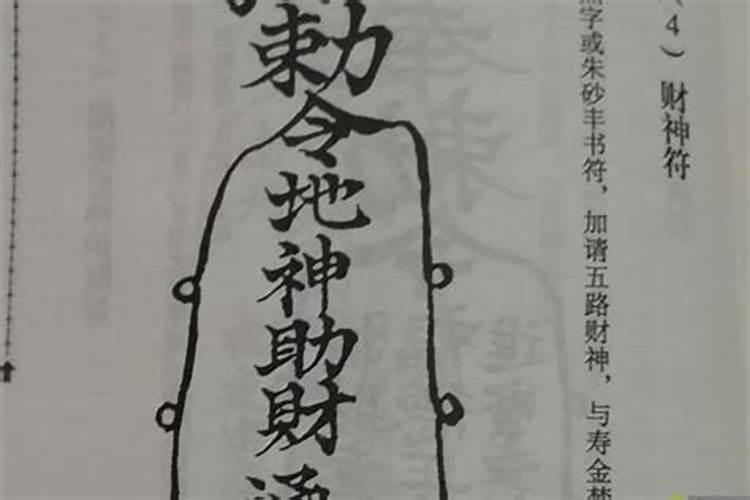 (4) 财神符
字或朱砂丰书符，加请五路财神，与寿金
勅令地神助財通